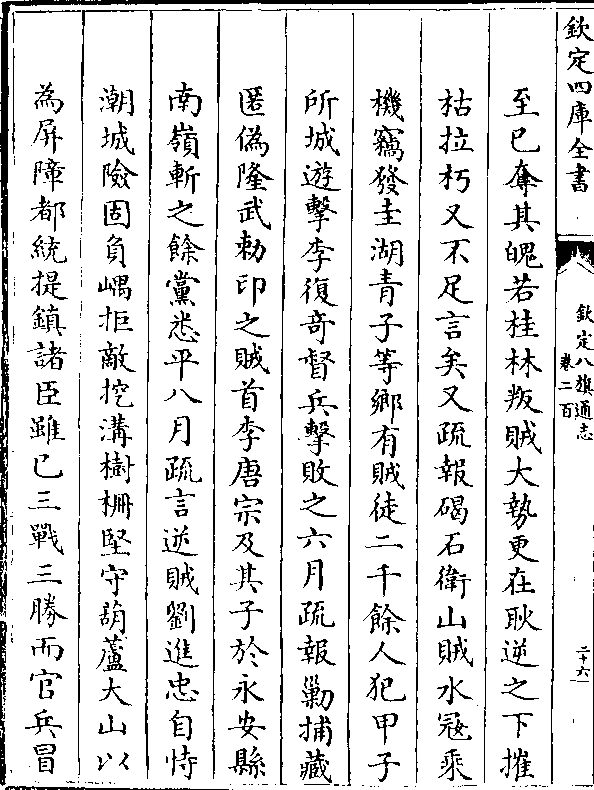 欽定四庫全書
欽定八旗通志
卷二百
二十六
至已奪其魄若桂林叛賊大勢更在耿逆之下摧
枯拉朽又不足言矣又疏報碣石衛山賊水冦乘
機竊發圭湖青子等鄉有賊徒二千餘人犯甲子
所城遊擊李復奇督兵擊敗之六月疏報勦捕藏
匿偽隆武勅印之賊首李唐宗及其子於永安縣
南嶺斬之餘黨悉平八月疏言逆賊劉進忠自恃
潮城險固負嵎拒敵挖溝樹柵堅守葫蘆大山以
為屏障都統提鎮諸臣雖已三戰三勝而官兵冒